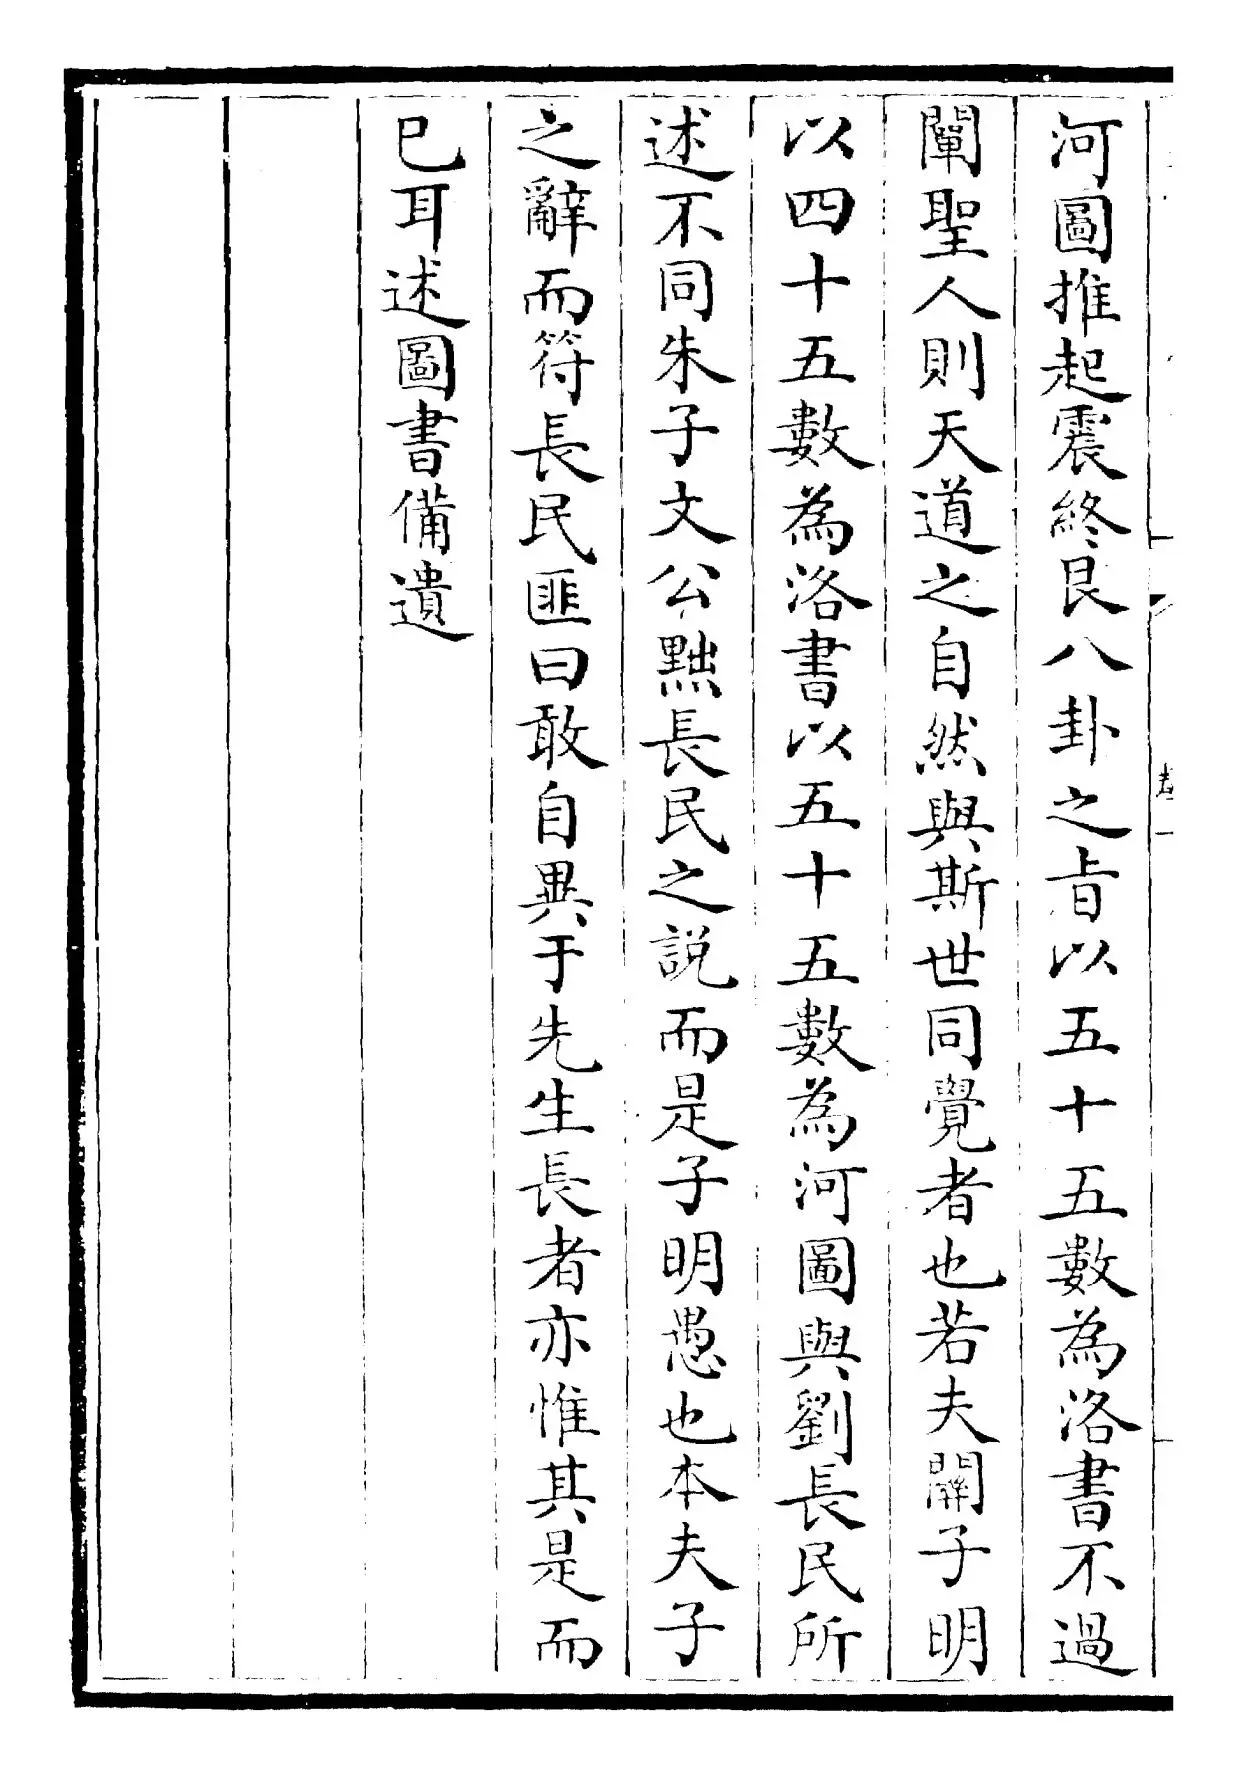 河圖推起震終艮八卦之旨以五十五數為洛書不過
闡聖人則天道之自然與斯世同覺者也若夫關子明
以四十五數為洛書以五十五數為河圖與劉長民所
述不同朱子文公黜長民之說而是子明愚也本夫子
之辭而符長民匪曰敢自異于先生長者亦惟其是而
已耳述圖書備遺